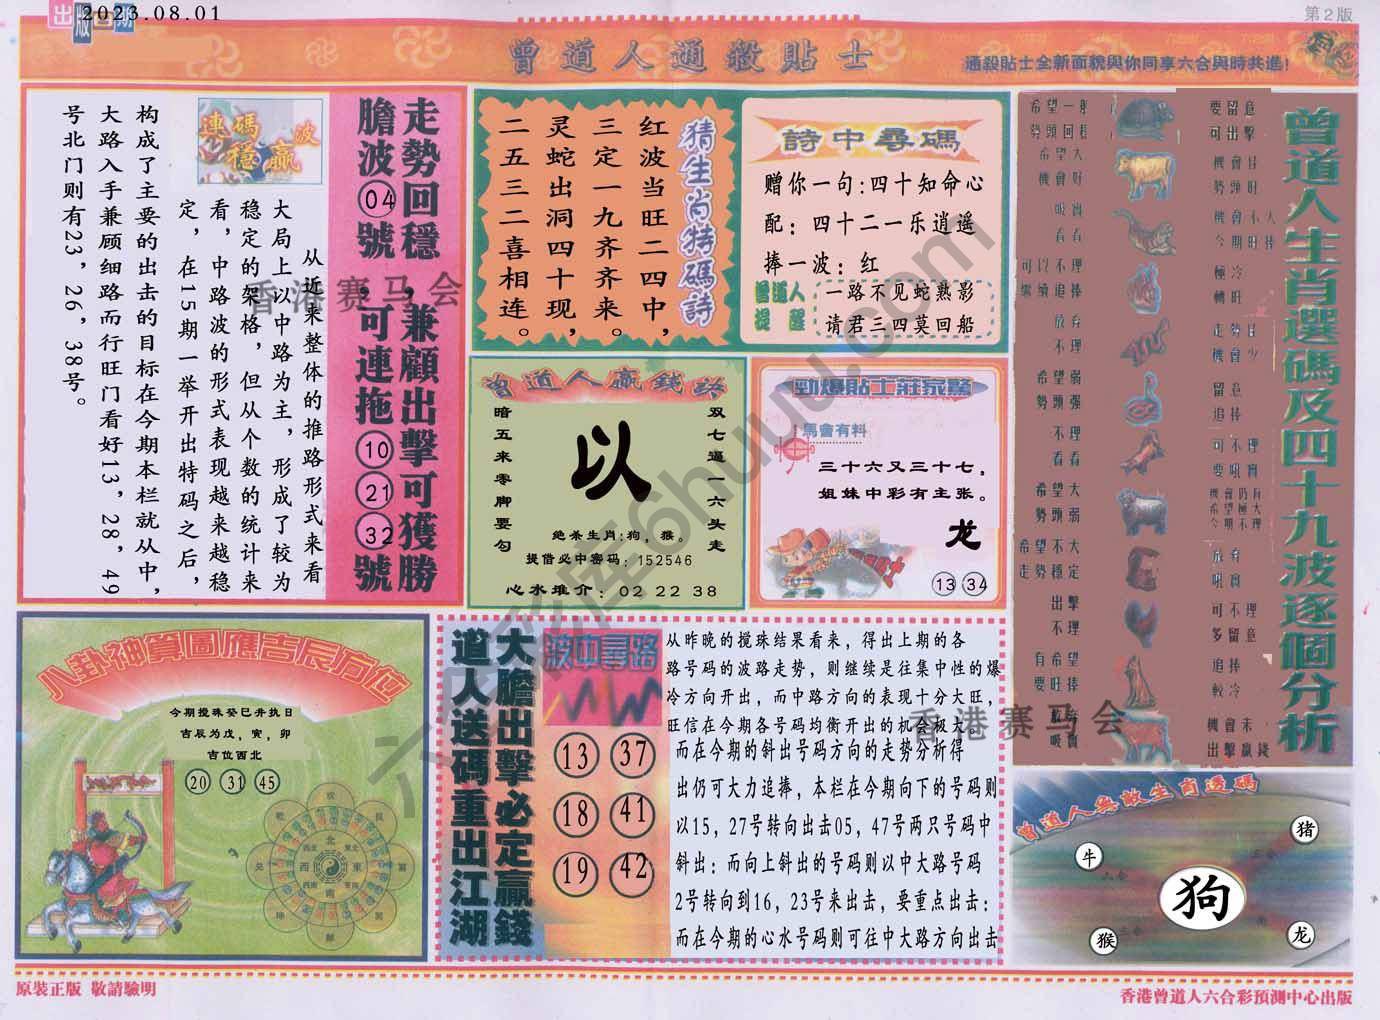 出版日期
2023.08.01
第2版
曾道人通殺貼士
通殺貼士全新面貌與你同享六合與時共進!
走勢回穩,兼顧出擊可獲勝
膽波04號,可連拖10 21 32號
連碼 波
穩贏
从近来整体的推路形式来看
大局上以中路为主,形成了较为
稳定的架格,但从个数的统计来
看,中路波的形式表现越来越稳
定,在15期一举开出特码之后,
构成了主要的出击的目标在今期本栏就从中,
大路入手兼顾细路而行旺门看好13,28,49
号北门则有23,26,38号。
猜生肖特碼詩
红波当旺二四中,
三定一九齐齐来。
灵蛇出洞四十现,
二五三二喜相连。
詩中尋碼
赠你一句:四十知命心
配:四十二一乐逍遥
捧一波:红
曾道人
提醒
一路不见蛇熟影
请君三四莫回船
曾道人贏錢詩
双七逼一六头走
以
暗五来零脚要勾
绝杀生肖:狗,猴。
提借必中密码:152546
心水堆介:02 22 38
勁爆貼士莊家驚
馬會有料
三十六又三十七,
姐妹中彩有主张。
龙
13 34
曾道人生肖選碼及四十九波逐個分析
希望一般
勢頭回穩
要留意
可出擊
希望大
機會好
機會佳
勢頭旺
吸實
看看
機會不大
今期旺捧
可以不理
繼續追捧
極冷
轉旺
放弃
不理
走勢佳
機會少
希望弱
勢頭强
留意
追捧
不理
看看
可不理
要吼實
希望大
勢頭弱
機會仍有
希望極大
今期不理
希望不大
走勢穩定
放弃
吼實
出擊
不理
可不理
多留意
有希望
要旺捧
追捧
較冷
吸實
機會未
出擊贏錢
八卦神算圖應吉辰方位
今期搅珠癸巳井执日
吉辰为戊,寅,卯
吉位西北
20 31 45
大膽出擊必定贏錢
道人送碼重出江湖
波中尋路
13 37
18 41
19 42
从昨晚的搅珠结果看来,得出上期的各
路号码的波路走势,则继续是往集中性的爆
冷方向开出,而中路方向的表现十分大旺,
旺信在今期各号码均衡开出的机会极大。
而在今期的斜出号码方向的走势分析得
出仍可大力追捧,本栏在今期向下的号码则
以15,27号转向出击05,47号两只号码中
斜出:而向上斜出的号码则以中大路号码
2号转向到16,23号来出击,要重点出击:
而在今期的心水号码则可往中大路方向出击
曾道人無敵生肖透碼
猪
牛
狗
猴
龙
香港赛马会
香港赛马会
六合彩库6huuu.com
原裝正版 敬請驗明
香港曾道人六合彩預測中心出版